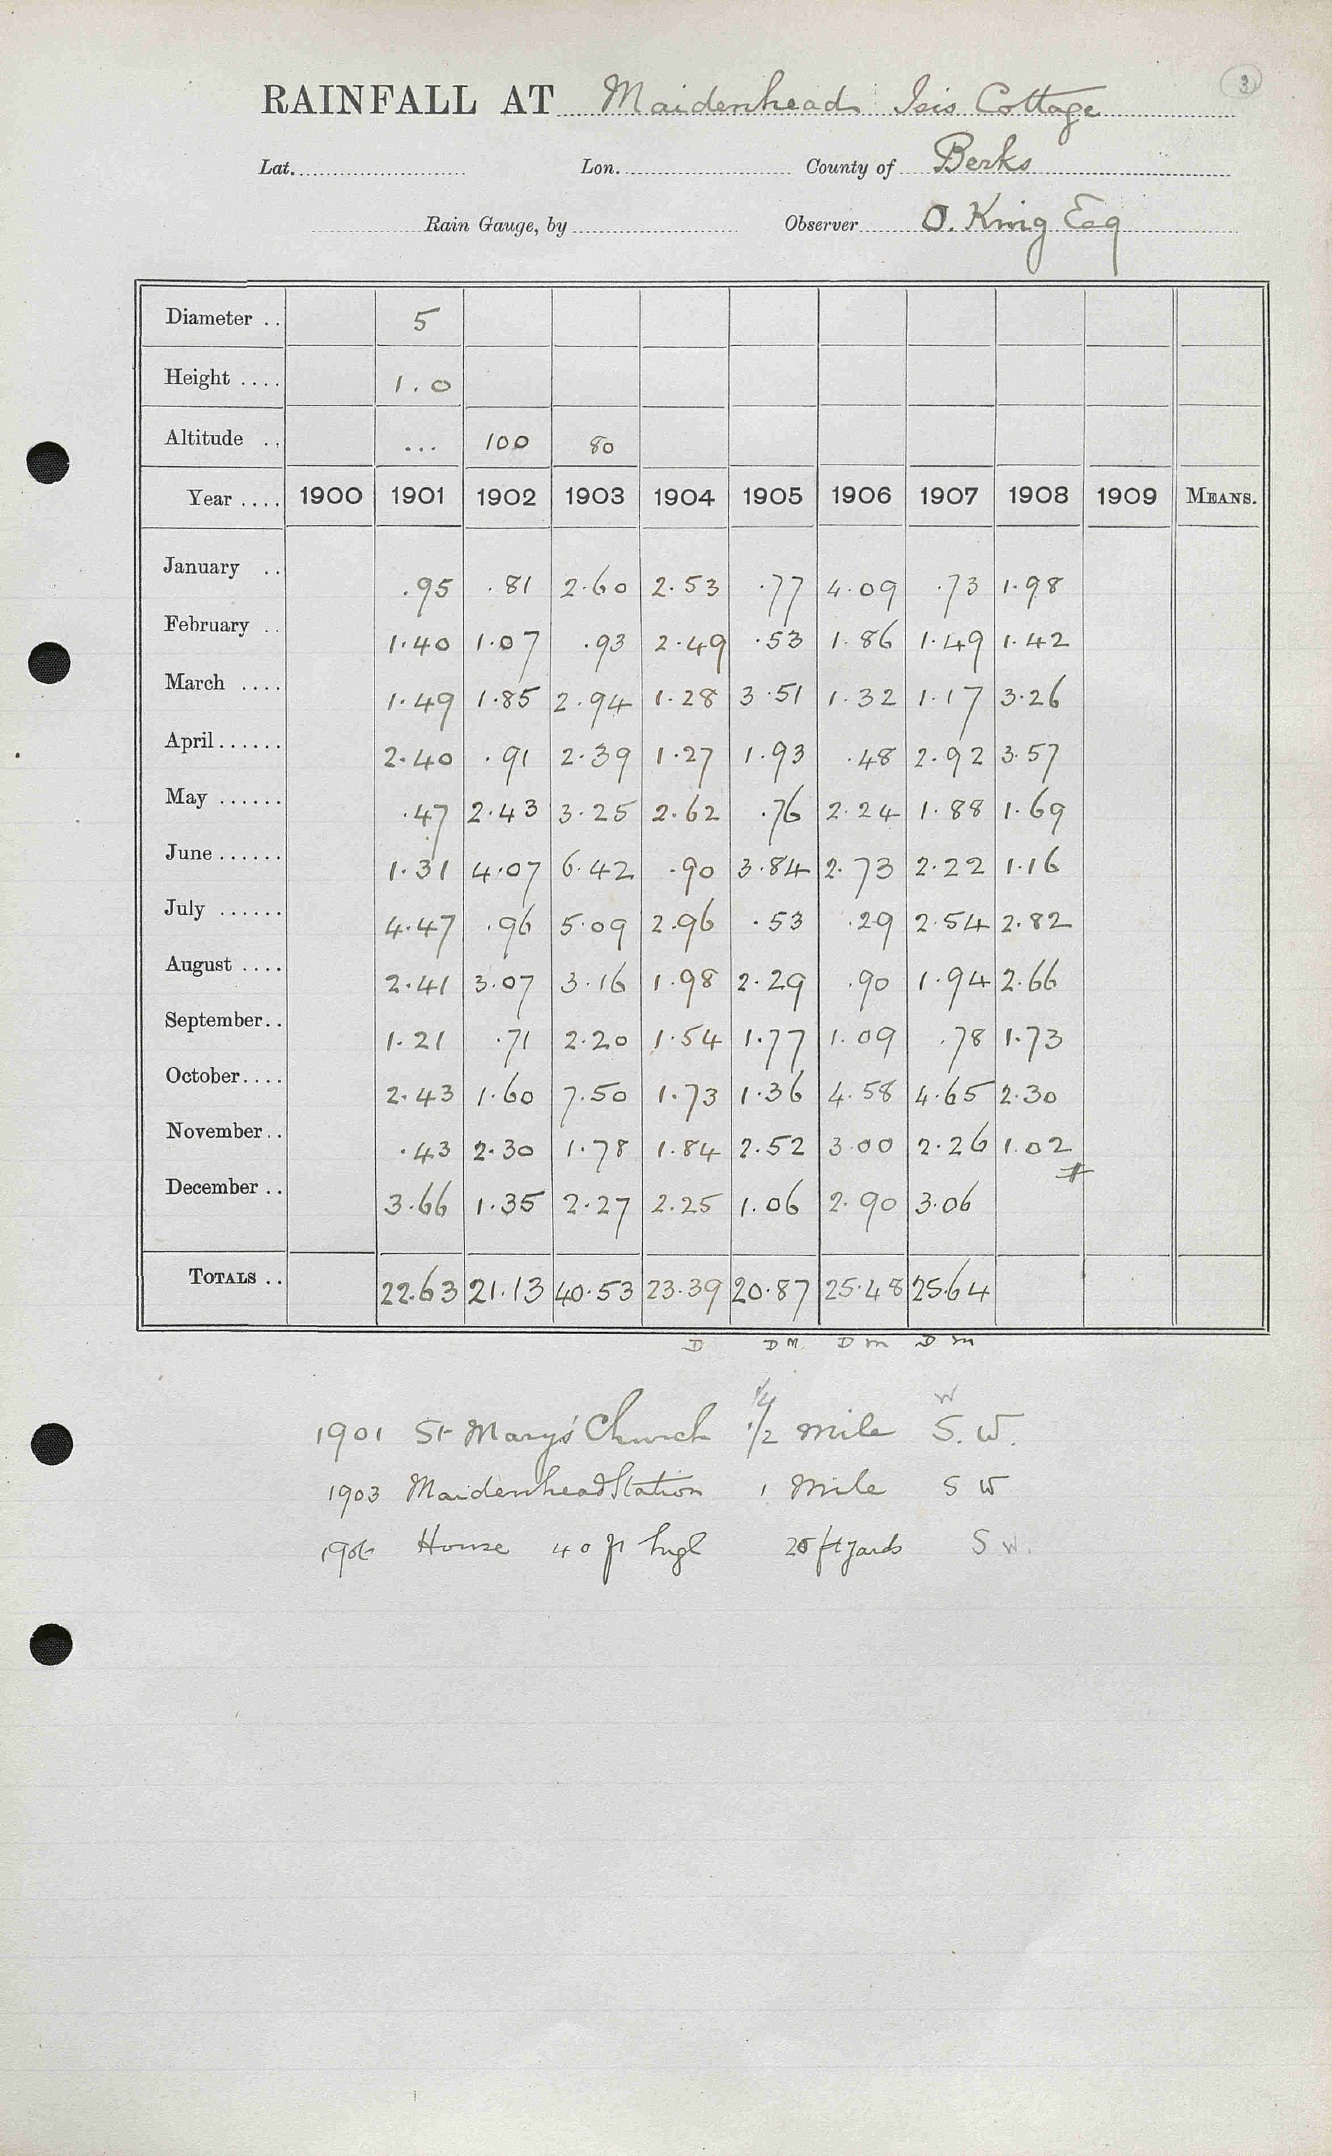 3
RAINFALL AT Maidenhead Isis Cottage
Lat. Lon. County of Berks
Rain Gauge, by Observer O. King Esq
Diameter .. 5
Height .... 1.0
Altitude .. ... 100 80
Year .... 1900 1901 1902 1903 1904 1905 1906 1907 1908 1909 MEANS.
January .. .95 .81 2.60 2.53 .77 4.09 .73 1.98
February .. 1.40 1.07 .93 2.49 .53 1.86 1.49 1.42
March .... 1.49 1.85 2.94 1.28 3.51 1.32 1.17 3.26
April...... 2.40 .91 2.39 1.27 1.93 .48 2.92 3.57
May ...... .47 2.43 3.25 2.62 .76 2.24 1.88 1.69
June...... 1.31 4.07 6.42 .90 3.84 2.73 2.22 1.16
July ...... 4.47 .96 5.09 2.96 .53 .29 2.54 2.82
August .... 2.41 3.07 3.16 1.98 2.29 .90 1.94 2.66
September.. 1.21 .71 2.20 1.54 1.77 1.09 .78 1.73
October.... 2.43 1.60 7.50 1.73 1.36 4.58 4.65 2.30
November.. .43 2.30 1.78 1.84 2.52 3.00 2.26 1.02
December .. 3.66 1.35 2.27 2.25 1.06 2.90 3.06
TOTALS .. 22.63 21.13 40.53 23.39 20.87 25.48 25.64
D D M D m D m
1/4 W
1901 St Mary's Church 1/2 mile S. W.
1903 Maidenhead Station 1 Mile S W
1906 House 40 ft high ft yards S W.